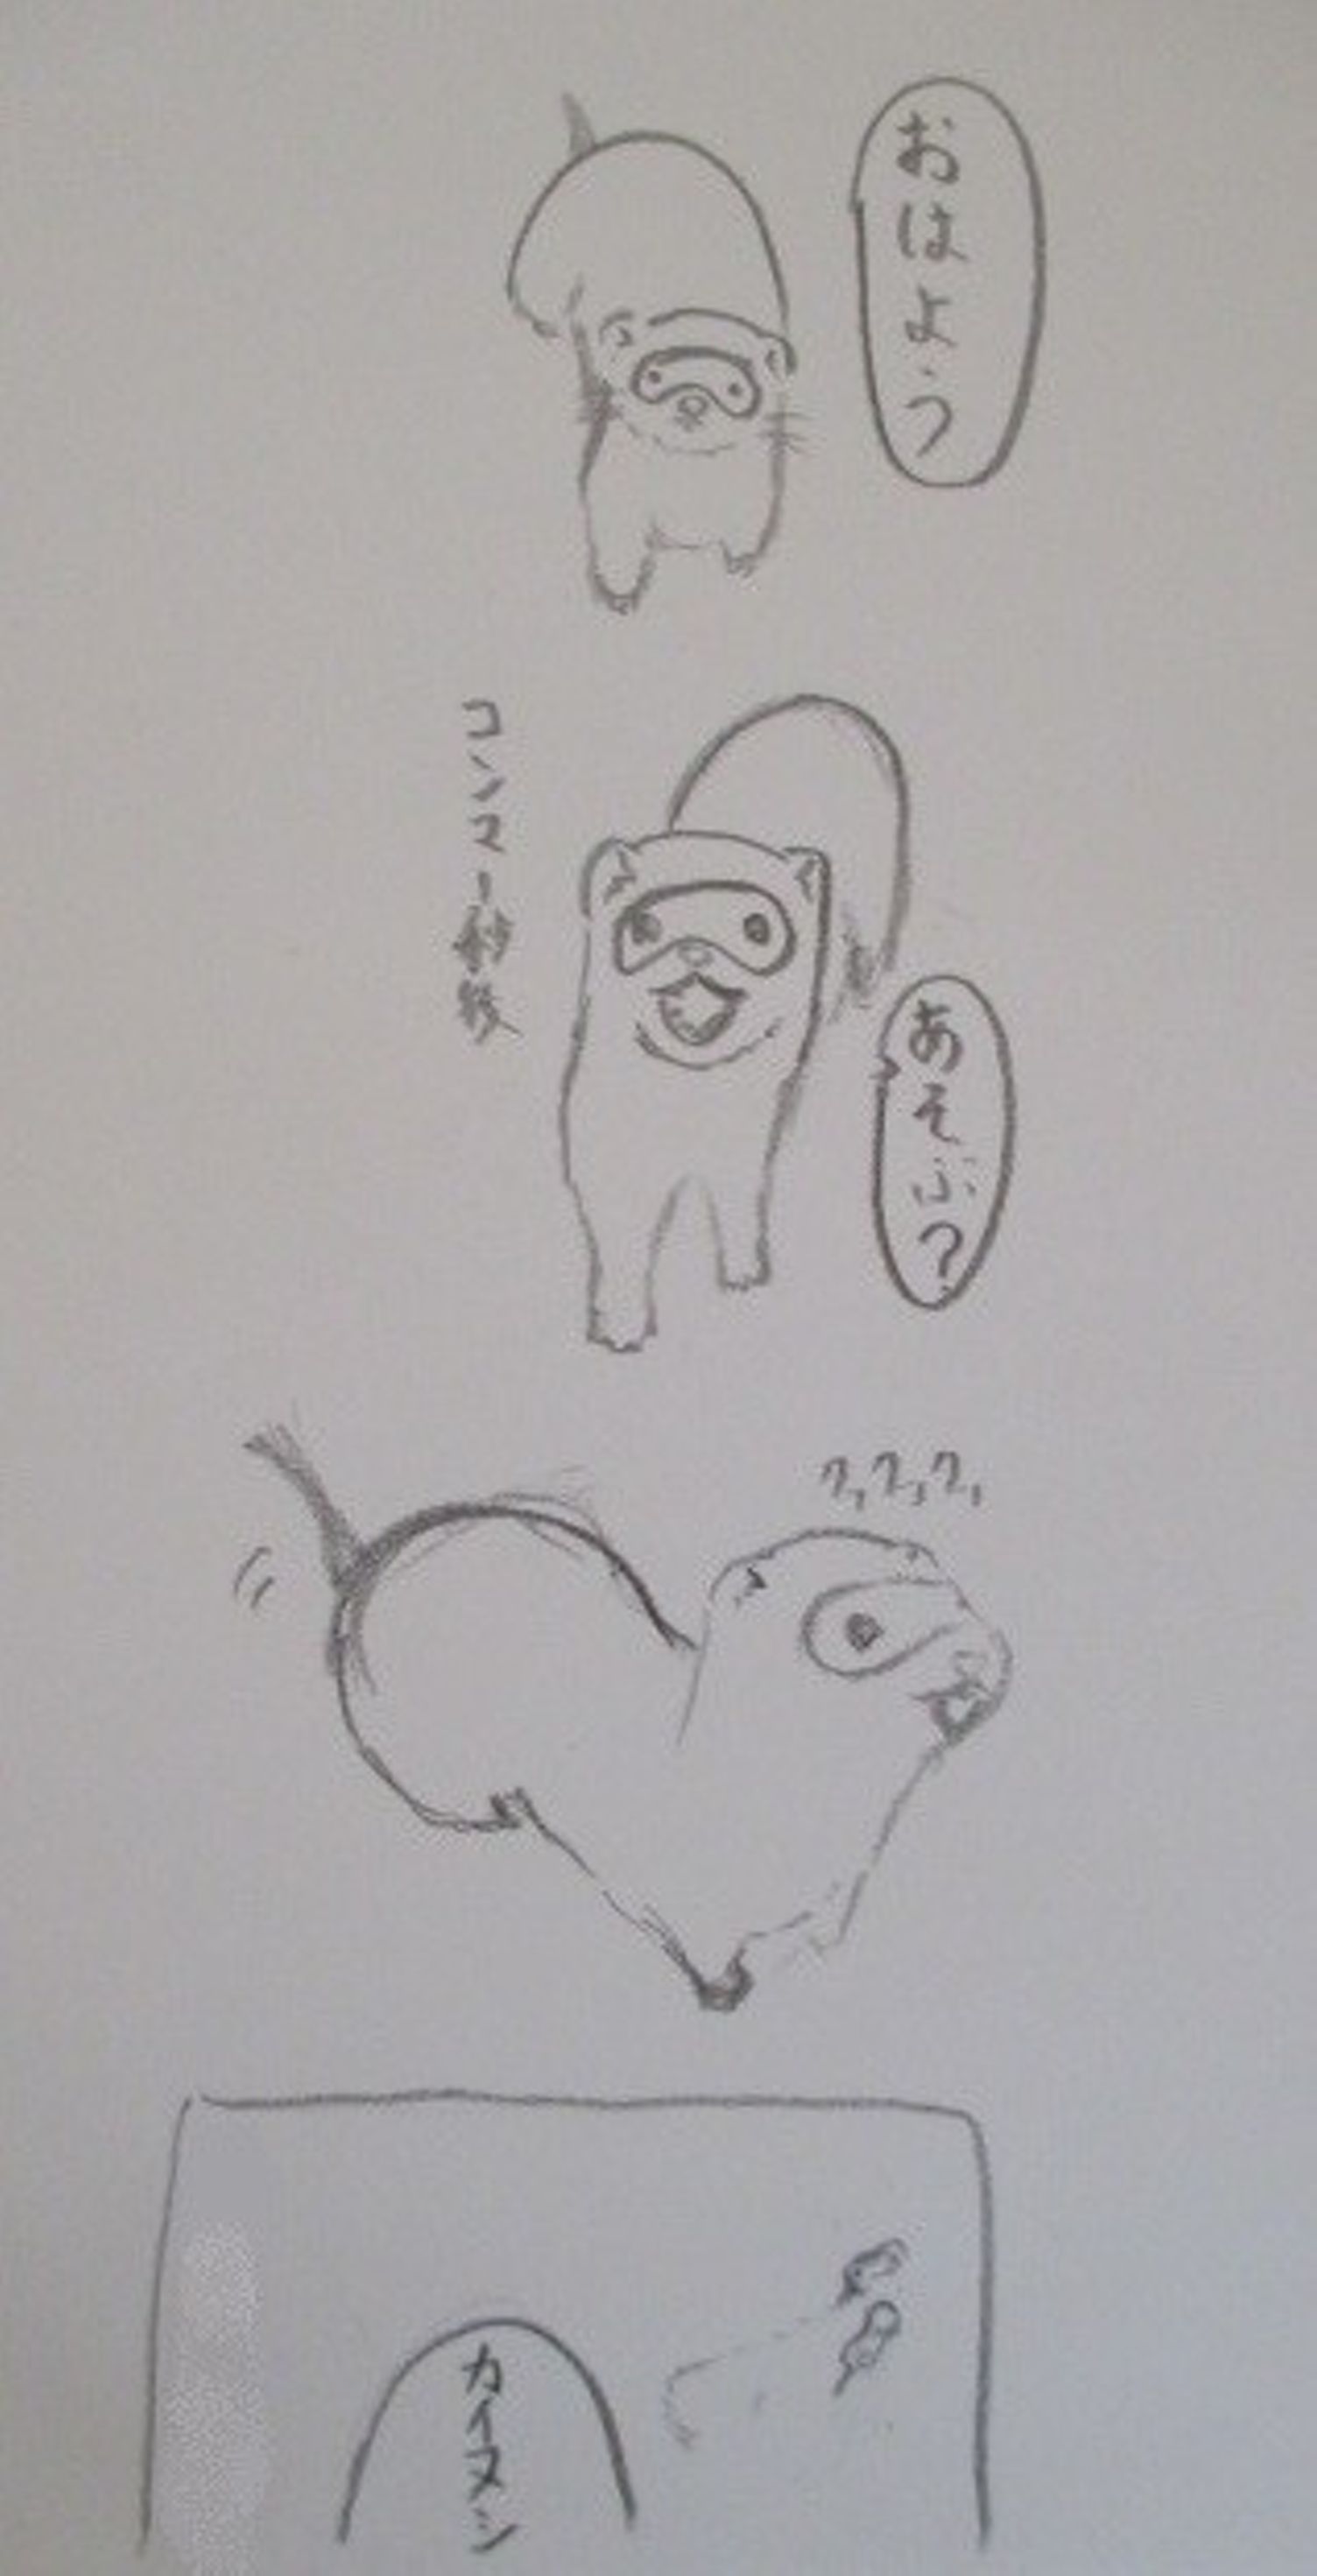 おはよう
コンマ1秒後
あそぶ?
ク,ク,ク,
カイヌシ